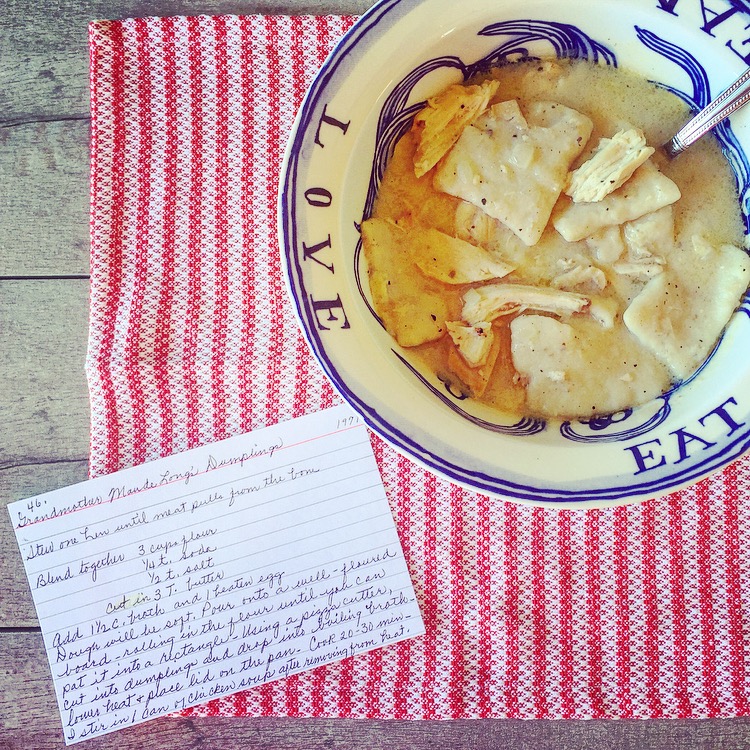 LOVE
EAT
46.
1997
Grandmother Maude Long's Dumplings
Stew one hen until meat pulls from the bone
Blend together 3 cups flour
1/4 t. soda
1/2 t. salt
cut in 3 T. butter
Add 1 1/2 c. broth and 1 beaten egg
Dough will be soft. Pour onto a well-floured
board - rolling in the flour until you can
pat it into a rectangle. Using a pizza cutter,
cut into dumplings and drop into boiling broth -
lower heat & place lid on the pan. Cook 20-30 min -
I stir in 1 can of chicken soup after removing from heat.